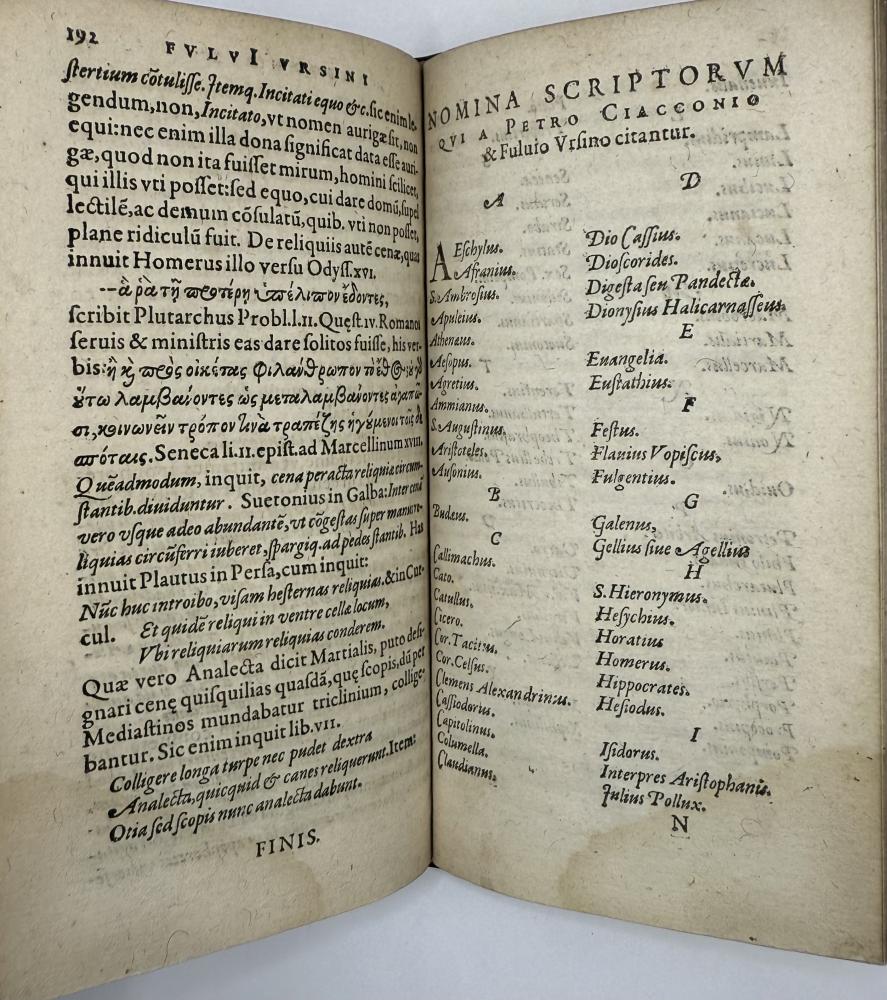 192
FVLVI VRSINI
stertium cõtulisse. Itemq. Incitati equo &c. sic enim le-
gendum, non, Incitato, vt nomen aurigæ sit, non
equi: nec enim illa dona significat data esse auri-
gæ, quod non ita fuisset mirum, homini scilicet,
qui illis vti posset: sed equo, cui dare domũ, supel
lectilẽ, ac demum cõsulatũ, quib. vti non posset,
plane ridiculũ fuit. De reliquiis autẽ cenæ, quas
innuit Homerus illo versu Odyss. xvi.
--ἅ ῥὰ τῇ προτέρῃ ὑπέλιπον ἔδοντες,
scribit Plutarchus Probl. l. 11. Quęst. iv. Romanos
seruis & ministris eas dare solitos fuisse, his ver-
bis: ἢ κỳ πρὸς οἰκέτας φιλάνθρωπον τὸ ἔθος
ὅτω λαμβάνοντες ὡς μεταλαμβάνοντες ἀγαπῶ-
σι, κοινωνεῖν τρόπον τινὰ τραπέζης ἡγούμενοι τοῖς δε
σπόταις. Seneca li. 11. epist. ad Marcellinum xviii.
Quẽadmodum, inquit, cena peracta reliquiæ circum-
stantib. diuiduntur. Suetonius in Galba: Inter cenã
vero vsque adeo abundantẽ, vt cõgestas super manus re-
liquias circũferri iuberet, spargiq. ad pedes stantib. Has
innuit Plautus in Persa, cum inquit:
Nũc huc introibo, visam hesternas reliquias. & in Cur-
cul. Et quidẽ reliqui in ventre cellæ locum,
Vbi reliquiarum reliquias conderem.
Quæ vero Analecta dicit Martialis, puto desi-
gnari cenę quisquilias quasdã, quę scopis, dũ per
Mediastinos mundabatur triclinium, collige-
bantur. Sic enim inquit lib. vii.
Colligere longa turpe nec pudet dextra
Analecta, quicquid & canes reliquerunt. Item:
Otia sed scopis nunc analecta dabunt.
FINIS.
NOMINA SCRIPTORVM
QVI A PETRO CIACCONIO
& Fuluio Vrsino citantur.
A
AEschylus.
Afranius.
S. Ambrosius.
Apuleius.
Athenæus.
Aesopus.
Agretius.
Ammianus.
S. Augustinus.
Aristoteles.
Ausonius.
B
Budæus.
C
Callimachus.
Cato.
Catullus.
Cicero.
Cor. Tacitus.
Cor. Celsus.
Clemens Alexandrinus.
Cassiodorius.
Capitolinus.
Columella.
Claudianus.
D
Dio Cassius.
Dioscorides.
Digesta seu Pandectæ.
Dionysius Halicarnasseus.
E
Euangelia.
Eustathius.
F
Festus.
Flauius Vopiscus.
Fulgentius.
G
Galenus.
Gellius siue Agellius
H
S. Hieronymus.
Hesychius.
Horatius
Homerus.
Hippocrates.
Hesiodus.
I
Isidorus.
Interpres Aristophanis.
Julius Pollux.
N